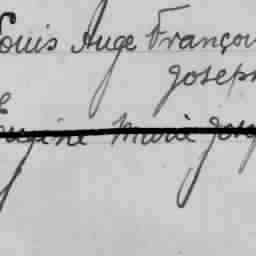 Louis Ange François
Joseph
Eugène Marie Joseph